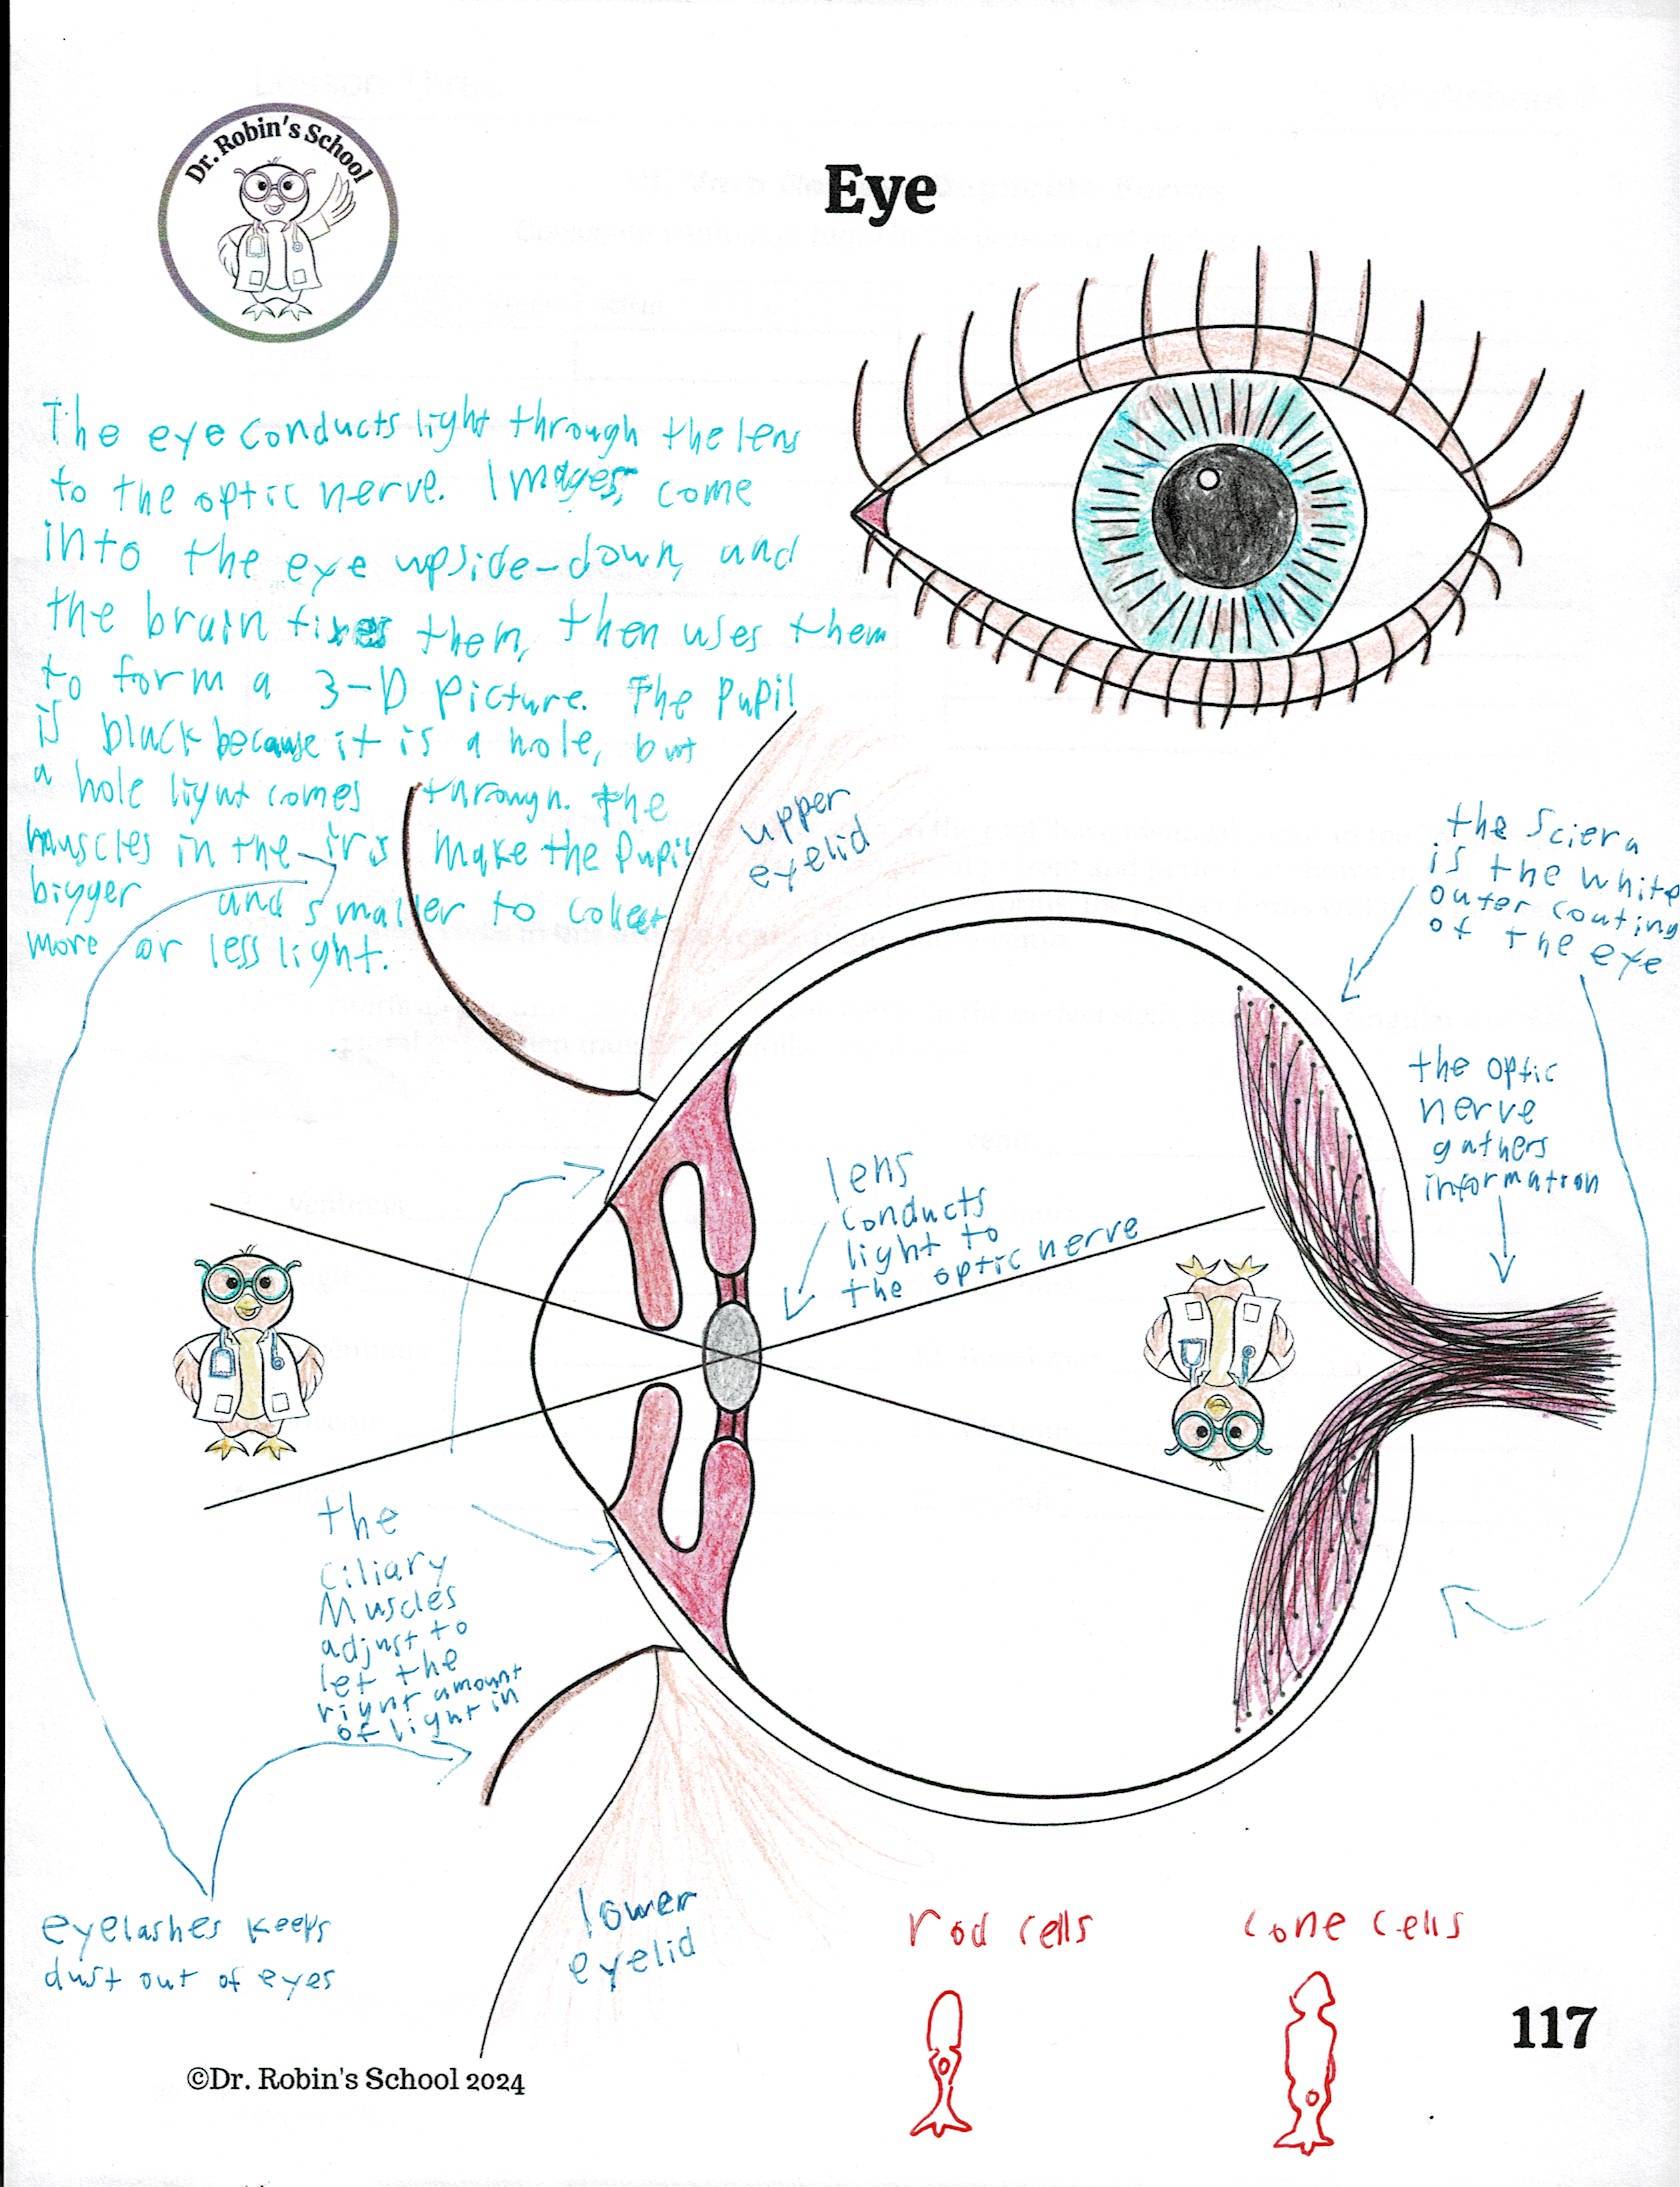 Dr. Robin's School
Eye
The eye conducts light through the lens
to the optic nerve. Images, come
into the eye upside-down, and
the brain fixes them, then uses them
to form a 3-D picture. The pupil
is black because it is a hole, but
a hole light comes through. The
muscles in the iris make the pupil
bigger and smaller to collect
more or less light.
upper
eyelid
the Sclera
is the white
outer coating
of the eye
the optic
nerve
gathers
information
lens
conducts
light to
the optic nerve
the
Ciliary
Muscles
adjust to
let the
right amount
of light in
eyelashes keeps
dust out of eyes
lower
eyelid
rod cells
cone cells
117
©Dr. Robin's School 2024